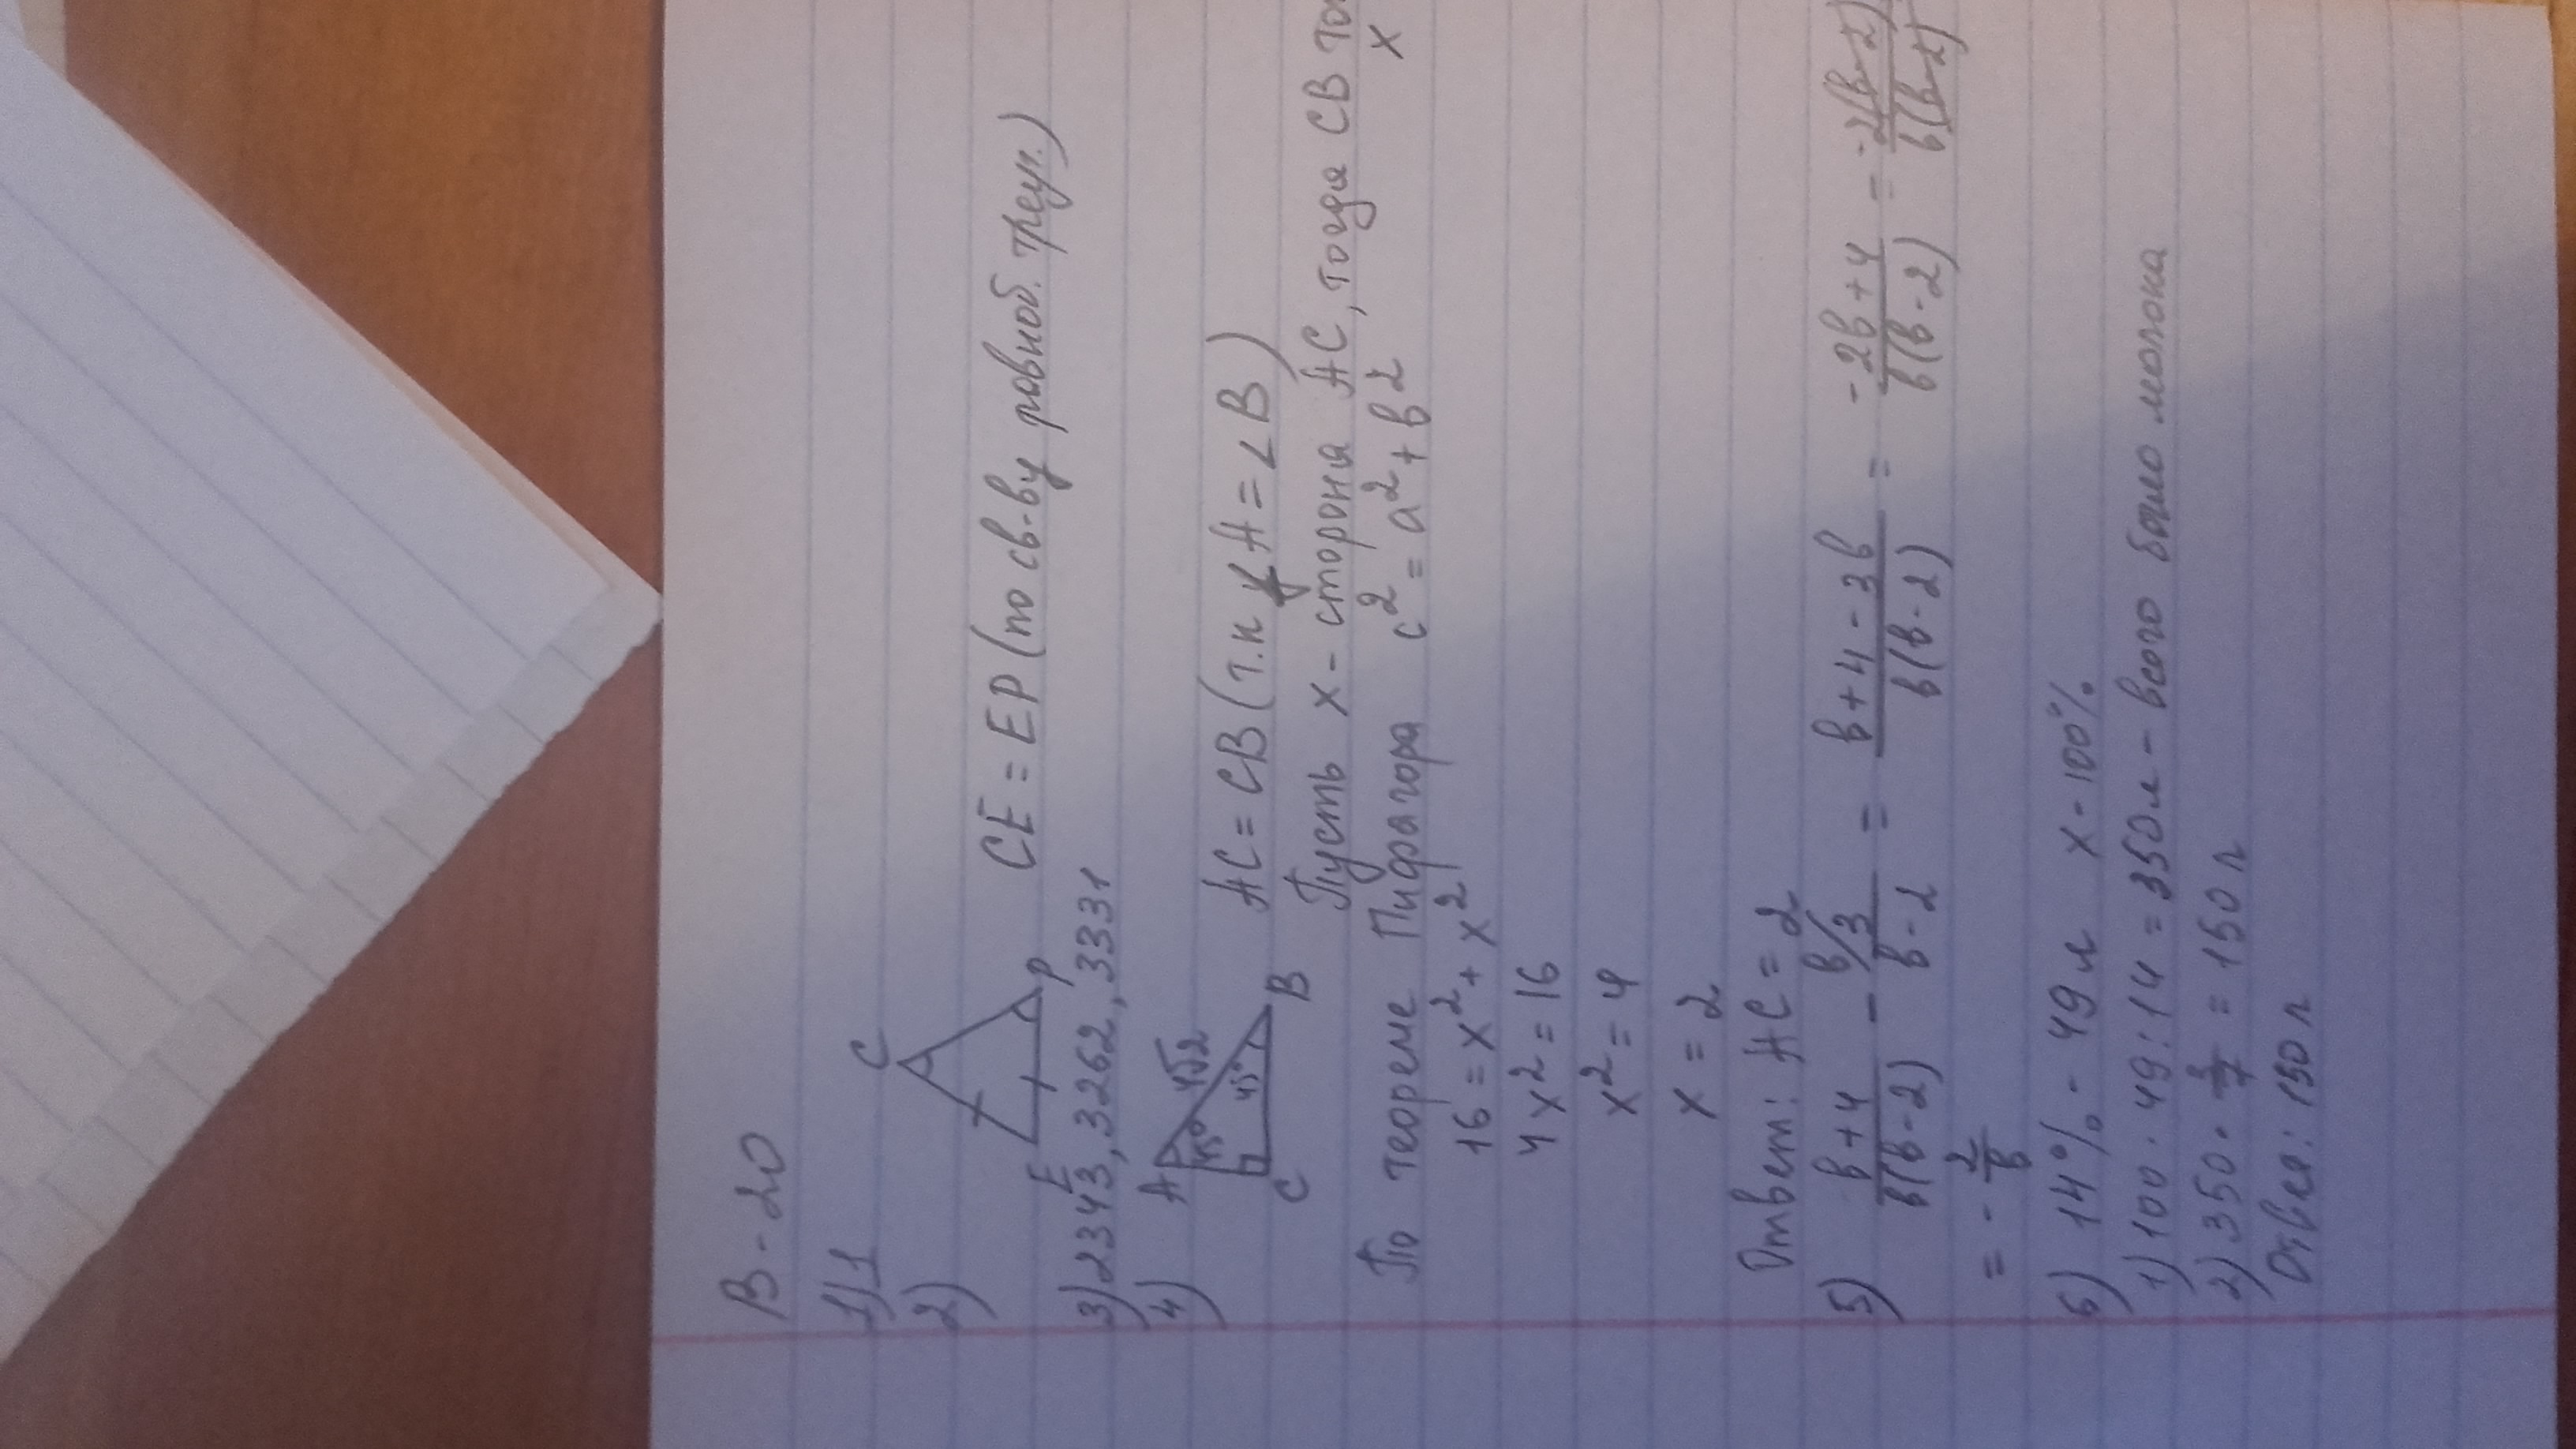 В-20
1) 1
2)
C
E
P
CE = EP (по св-ву равноб. треуг.)
3) 23343, 3262, 3331
4)
A
4√2
45°
45°
C
B
AC = CB (т.к ∠A = ∠B)
Пусть x - сторона AC, тогда CB то
x
По теореме Пифагора c² = a² + b²
16 = x² + x²
4x² = 16
x² = 4
x = 2
Ответ: AC = 2
5) (b+4)/(b(b-2)) - b/ 3/(b-2) = (b+4-3b)/(b(b-2)) = (-2b+4)/(b(b-2)) = (-2(b-2))/(b(b-2))
= -2/b
6) 14% - 49 л x - 100%
1) 100 · 49 : 14 = 350 л - всего было молока
2) 350 · 3/7 = 150 л
Ответ: 150 л